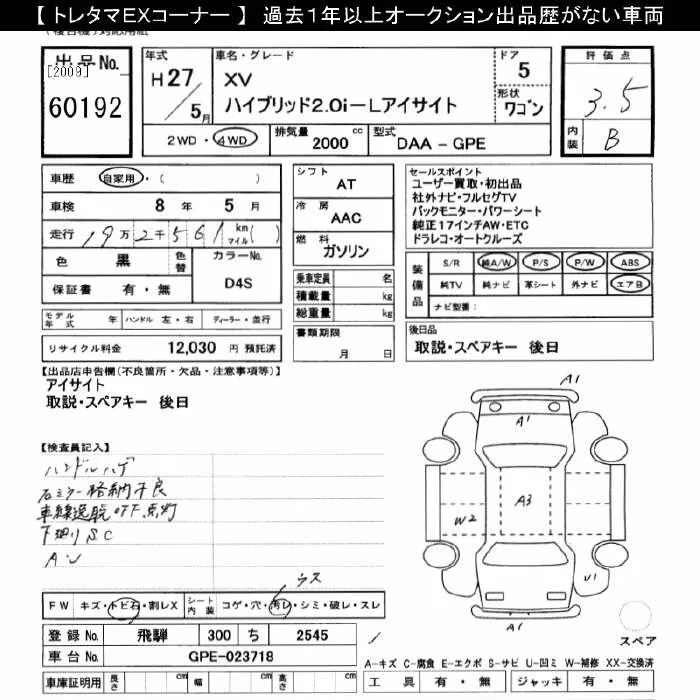 【 トレタマEXコーナー 】 過去1年以上オークション出品歴がない車両
出品No.
[2009]
60192
年式
H27/5月
車名・グレード
XV
ハイブリッド2.0i-Lアイサイト
ドア
5
形状
ワゴン
評価点
3.5
内装
B
2WD・4WD
排気量
2000 cc
型式
DAA - GPE
車歴 自家用・( )
車検 8 年 5 月
走行 19万2千561 km マイル ( )
色 黒 色替 カラーNo.
保証書 有・無 D4S
モデル年式 年 ハンドル 左・右 ディーラー・並行
リサイクル料金 12,030 円 預託済
シフト
AT
冷房
AAC
燃料
ガソリン
乗車定員 名
積載量 kg
総重量 kg
書類期限
月 日
セールスポイント
ユーザー買取・初出品
社外ナビ・フルセグTV
バックモニター・パワーシート
純正17インチAW・ETC
ドラレコ・オートクルーズ
装備品
S/R 純A/W P/S P/W ABS
純TV 純ナビ 革シート 外ナビ エアB
ナビ型番:
後日品
取説・スペアキー 後日
【出品店申告欄(不良箇所・欠品・注意事項等)】
アイサイト
取説・スペアキー 後日
【検査員記入】
ハンドルハゲ
右ミラー格納不良
車線逸脱OFF点灯
下廻りSC
A1
A1
A3
W2
U1
A1
スペア
FW キズ・トビ石・割レX シート内装 コゲ・穴・汚レ・シミ・破レ・スレ
ウス
登録No. 飛騨 300 ち 2545
車台No. GPE-023718
車庫証明用 長さ cm 幅 cm 高さ cm
A-キズ C-腐食 E-エクボ S-サビ U-凹ミ W-補修 XX-交換済
工具 有・無 ジャッキ 有・無